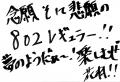 念願そして悲願の
802レギュラー!!
夢のようだぁ〜!楽しむぜ
だれ!!